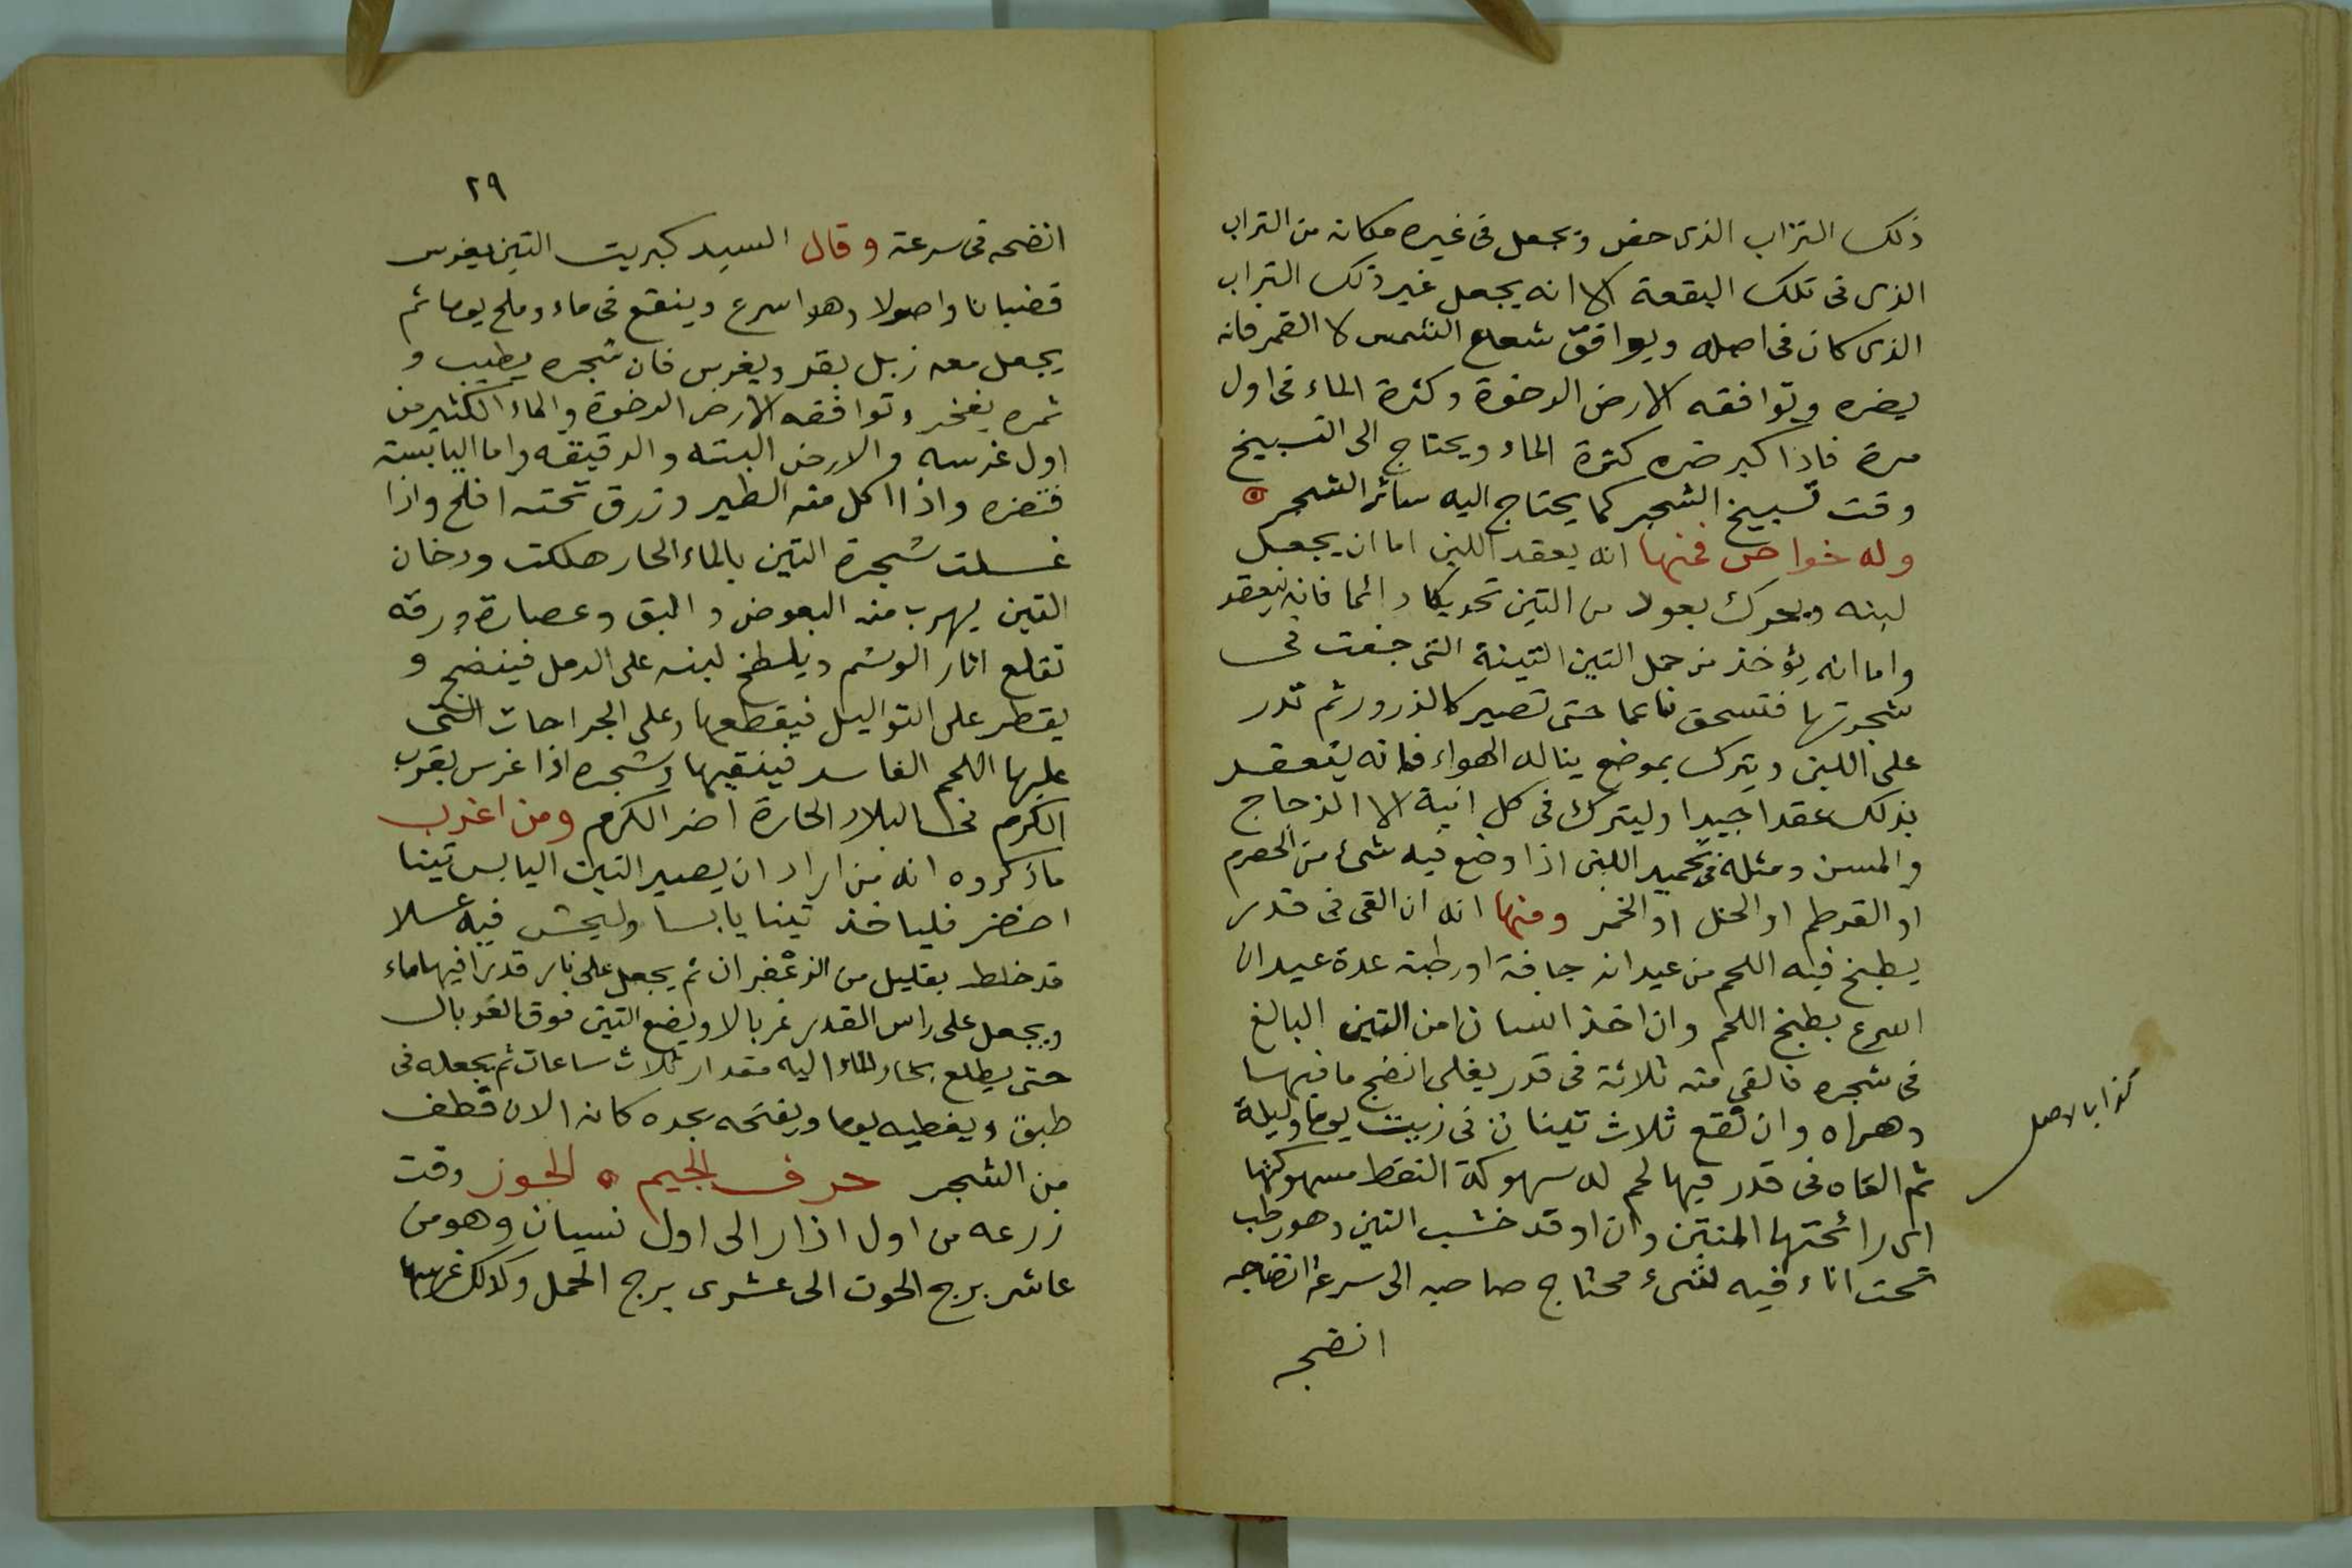 ذلك التراب الذى حفر ويجعل فى غيره مكانه من التراب
الذى فى تلك البقعة الا انه يجعل غير ذلك التراب
الذى كان فى اصله ويوافق شعاع الشمس لا القمر فانه
يضره وتوافقه الارض الرخوة وكثرة الماء فى اول
مرة فاذا كبر ضره كثرة الماء ويحتاج الى التسبيخ
وقت تسبيخ الشجر كما يحتاج اليه سائر الشجر
وله خواص فمنها انه يعقد اللبن اما ان يجعل
لبنه ويحرك بعود من التين تحريكا دائما فانه ينعقد
واما انه يؤخذ من حمل التين التينة التى جفت فى
شجرتها فتسحق ناعما حتى تصير كالذرور ثم تذر
على اللبن ويترك بموضع يناله الهواء فانه ينعقد
بذلك عقدا جيدا وليترك فى كل انية الا الزجاج
والمسن ومثله فى تجميد اللبن اذا وضع فيه شئ من الحصرم
او القرطم او الخل او الخمر ومنها انه ان القى فى قدر
يطبخ فيه اللحم من عيدانه جافة او رطبة عدة عيدان
اسرع بطبخ اللحم وان اخذ انسان من التين البالغ
فى شجره فالقى منه ثلاثة فى قدر يغلى انضج ما فيها
وهراه وان نقع ثلاث تينات فى زيت يوما وليلة
ثم القاه فى قدر فيها لحم له سهوكة التقط سهوكتها
اى رائحتها المنتن وان اوقد خشب التين وهو رطب
تحت اناء فيه شىء محتاج صاحبه الى سرعة انضاجه
انضجه
كذا بالاصل
٢٩
انضجه فى سرعة وقال السيد كبريت التين يغرس
قضبانا واصولا وهو اسرع وينقع فى ماء وملح يوما ثم
يجعل معه زبل بقر ويغرس فان شجره يطيب و
ثمره يفخر وتوافقه الارض الرخوة والماء الكثير من
اول غرسه والارض البتنه والرقيقه واما اليابسة
فتضره واذا اكل منه الطير وزرق تحته افلح واذا
غسلت شجرة التين بالماء الحار هلكت ودخان
التين يهرب منه البعوض والبق وعصارة ورقه
تقلع اثار الوشم ويلطخ لبنه على الدمل فينضج و
يقطر على التواليل فيقطعها وعلى الجراحات التى
عليها اللحم الفاسد فينقيها وشجره اذا غرس بقرب
الكرم فى البلاد الحارة اضر الكرم ومن اغرب
ما ذكروه انه من اراد ان يصير التين اليابس تينا
اخضر فلياخذ تينا يابسا وليحش فيه عسلا
قد خلط بقليل من الزعفران ثم يجعل على نار قدرا فيها ماء
ويجعل على راس القدر غربالا ويضع التين فوق الغربال
حتى يطلع بخار الماء اليه مقدار ثلاث ساعات ثم يجعله فى
طبق ويغطيه يوما ويفتحه يجده كانه الان قطف
من الشجر حرف الجيم الجوز وقت
زرعه من اول اذار الى اول نسيان وهو من
عاشر برج الحوت الى عشرى برج الحمل وكذلك غرسها